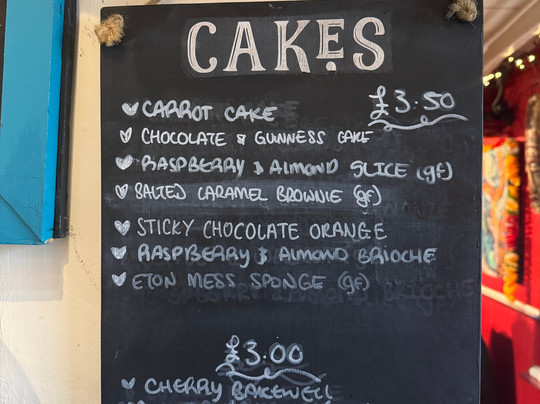 CAKES
£3.50
CARROT CAKE
CHOCOLATE & GUINNESS CAKE
RASPBERRY & ALMOND SLICE (gf)
SALTED CARAMEL BROWNIE (gf)
STICKY CHOCOLATE ORANGE
RASPBERRY & ALMOND BRIOCHE
ETON MESS SPONGE (gf)
£3.00
CHERRY BAKEWELL